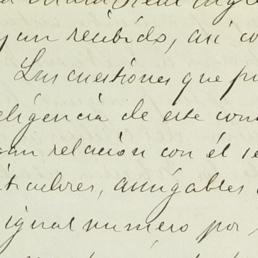 yan recibido, así co
Las cuestiones que pu
eligencia de este con
an relación con él se
ticulares, amigables
igual numero por